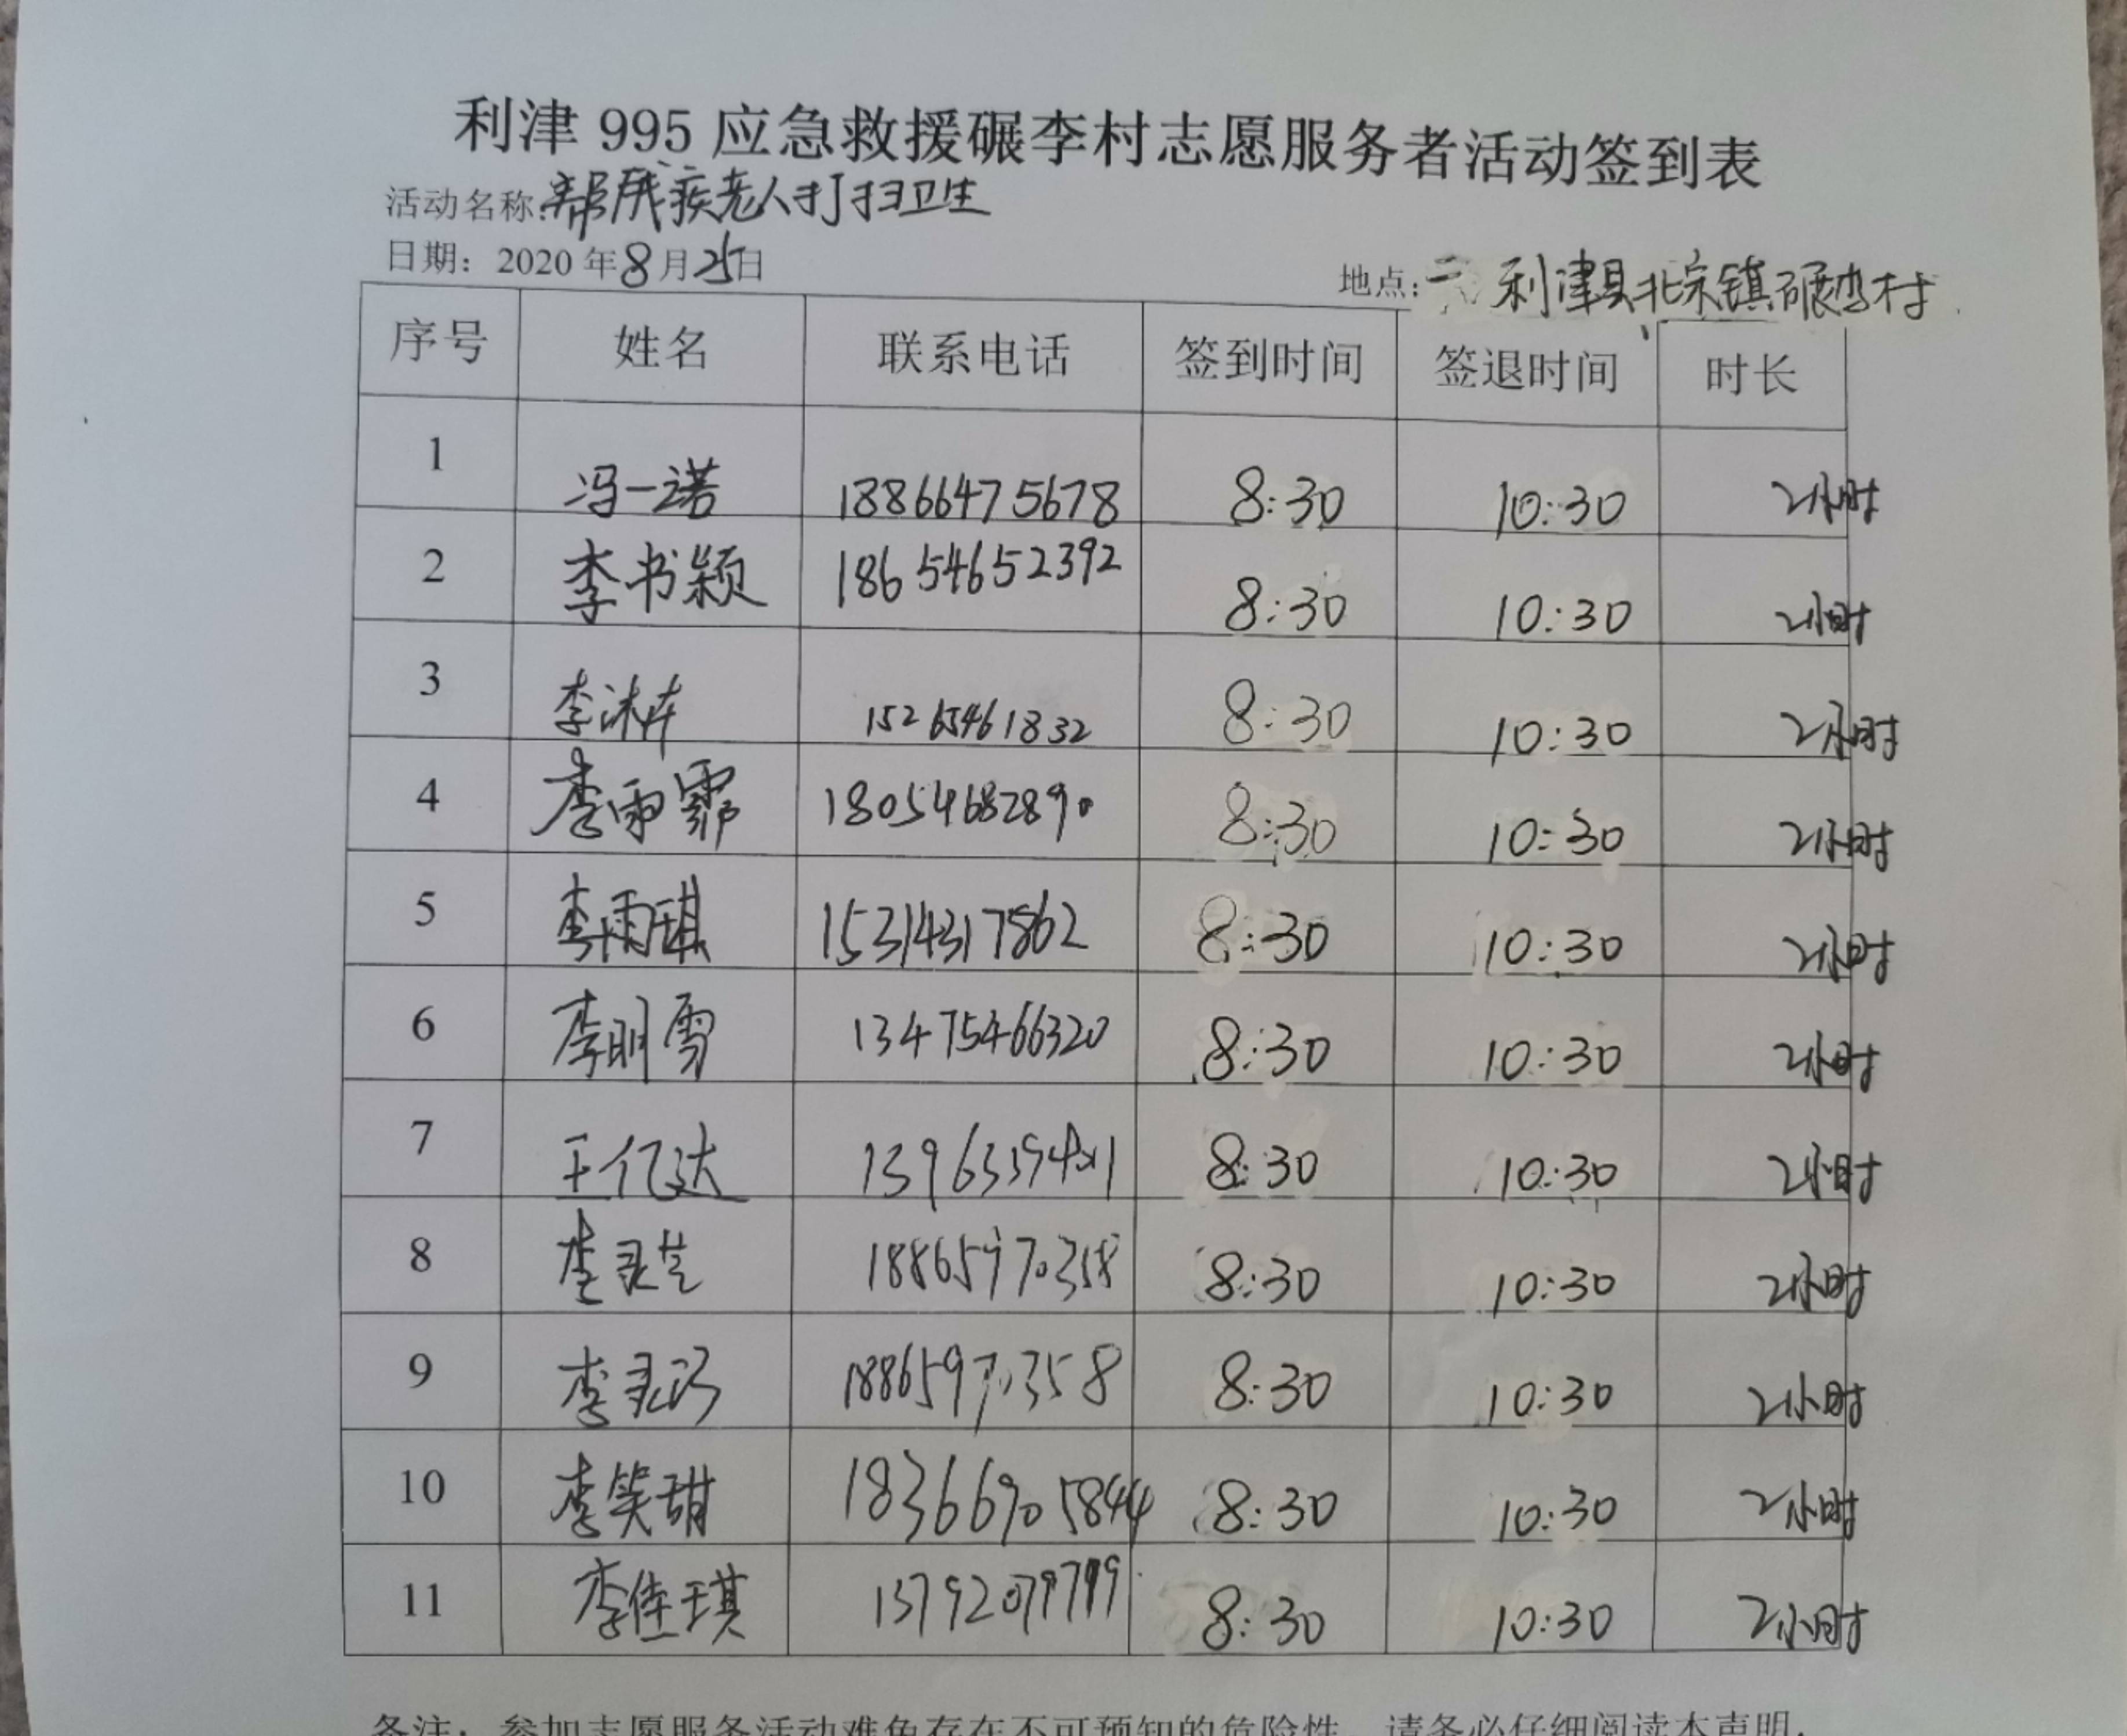 利津 995 应急救援碾李村志愿服务者活动签到表
活动名称:帮残疾老人打扫卫生
日期：2020 年8月25日
地点: 利津县北宋镇碾李村
序号 姓名 联系电话 签到时间 签退时间 时长
1 冯一诺 18866475678 8:30 10:30 2小时
2 李书颖 18654652392 8:30 10:30 2小时
3 15265461832 8:30 10:30 2小时
4 李雨霏 18054682890 8:30 10:30 2小时
5 李雨琪 15314317862 8:30 10:30 2小时
6 李明雪 13475466320 8:30 10:30 2小时
7 王亿达 8:30 10:30 2小时
8 李灵芝 18865970358 8:30 10:30 2小时
9 18865970358 8:30 10:30 2小时
10 李笑甜 18366905844 8:30 10:30 2小时
11 李佳琪 13792079799 8:30 10:30 2小时
备注：参加志愿服务活动难免存在不可预知的危险性，请务必仔细阅读本声明，